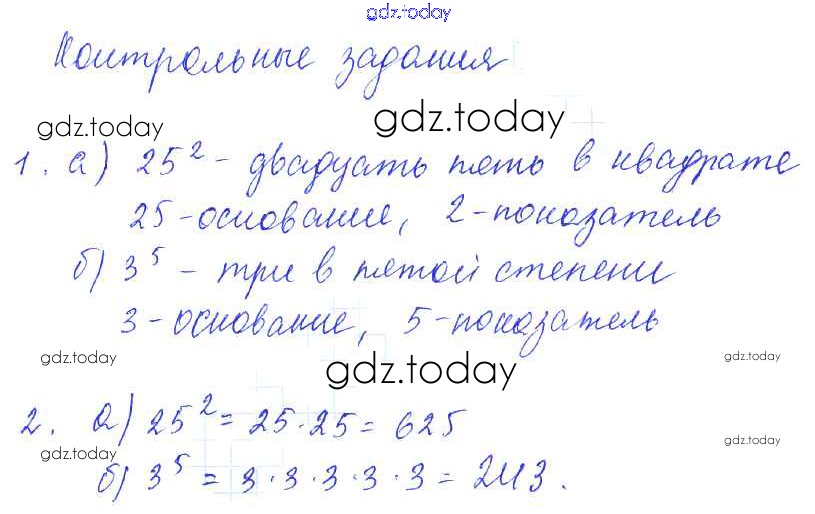 gdz.today
Контрольные задания
gdz.today
gdz.today
1. а) 25² - двадцать пять в квадрате
25 - основание, 2 - показатель
б) 3⁵ - три в пятой степени
3 - основание, 5 - показатель
gdz.today
gdz.today
gdz.today
2. а) 25² = 25 · 25 = 625
gdz.today
gdz.today
б) 3⁵ = 3 · 3 · 3 · 3 · 3 = 243.